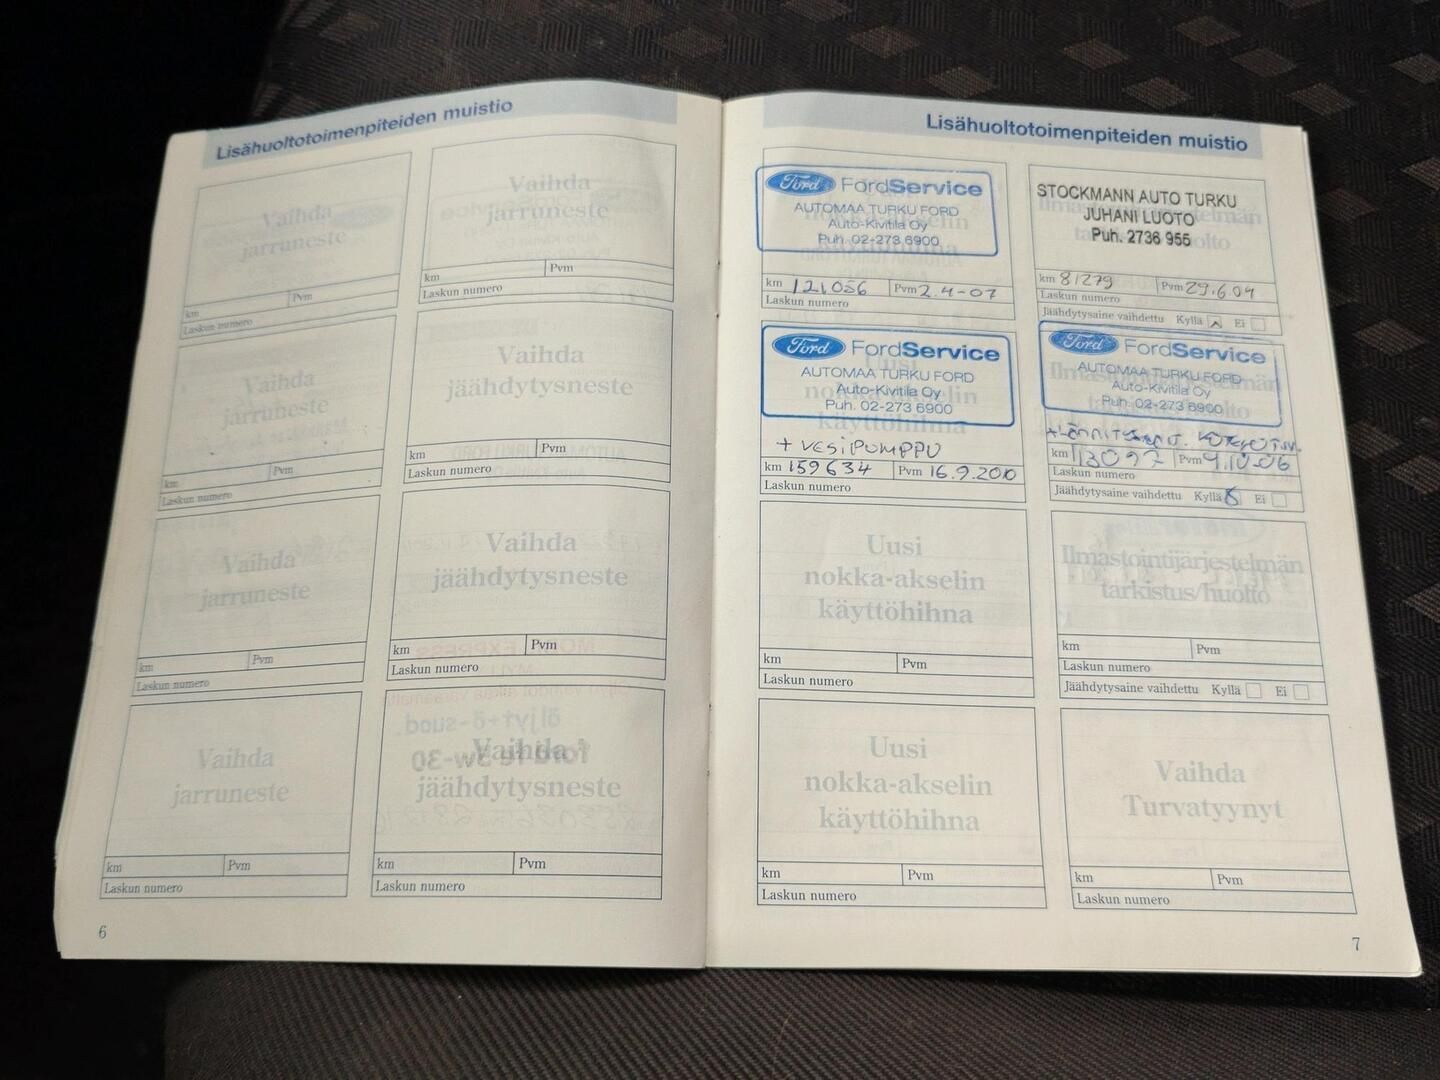 Lisähuoltotoimenpiteiden muistio
Vaihda
jarruneste
km
Pvm
Laskun numero
Vaihda
jarruneste
km
Pvm
Laskun numero
Vaihda
jarruneste
km
Pvm
Laskun numero
Vaihda
jarruneste
km
Pvm
Laskun numero
Vaihda
jarruneste
km
Pvm
Laskun numero
Vaihda
jäähdytysneste
km
Pvm
Laskun numero
Vaihda
jäähdytysneste
km
Pvm
Laskun numero
Vaihda
jäähdytysneste
km
Pvm
Laskun numero
6
Lisähuoltotoimenpiteiden muistio
Ford FordService
AUTOMAA TURKU FORD
Auto-Kivitila Oy
Puh. 02-273 6900
nokka-akselin
käyttöhihna
km 121056 Pvm 2.4-07
Laskun numero
Ford FordService
Uusi
AUTOMAA TURKU FORD
nokka-akselin
Auto-Kivitila Oy
Puh. 02-273 6900
käyttöhihna
+ VESIPUMPPU
km 159634 Pvm 16.9.2010
Laskun numero
Uusi
nokka-akselin
käyttöhihna
km
Pvm
Laskun numero
Uusi
nokka-akselin
käyttöhihna
km
Pvm
Laskun numero
STOCKMANN AUTO TURKU
JUHANI LUOTO
Puh. 2736 955
km 81279 Pvm 29.6.04
Laskun numero
Jäähdytysaine vaihdettu Kyllä Ei
Ford FordService
AUTOMAA TURKU FORD
Auto-Kivitila Oy
Puh. 02-273 6900
km 113097 Pvm 9.10.06
Laskun numero
Jäähdytysaine vaihdettu Kyllä Ei
Ilmastointijärjestelmän
tarkistus/huolto
km
Pvm
Laskun numero
Jäähdytysaine vaihdettu Kyllä Ei
Vaihda
Turvatyynyt
km
Pvm
Laskun numero
7